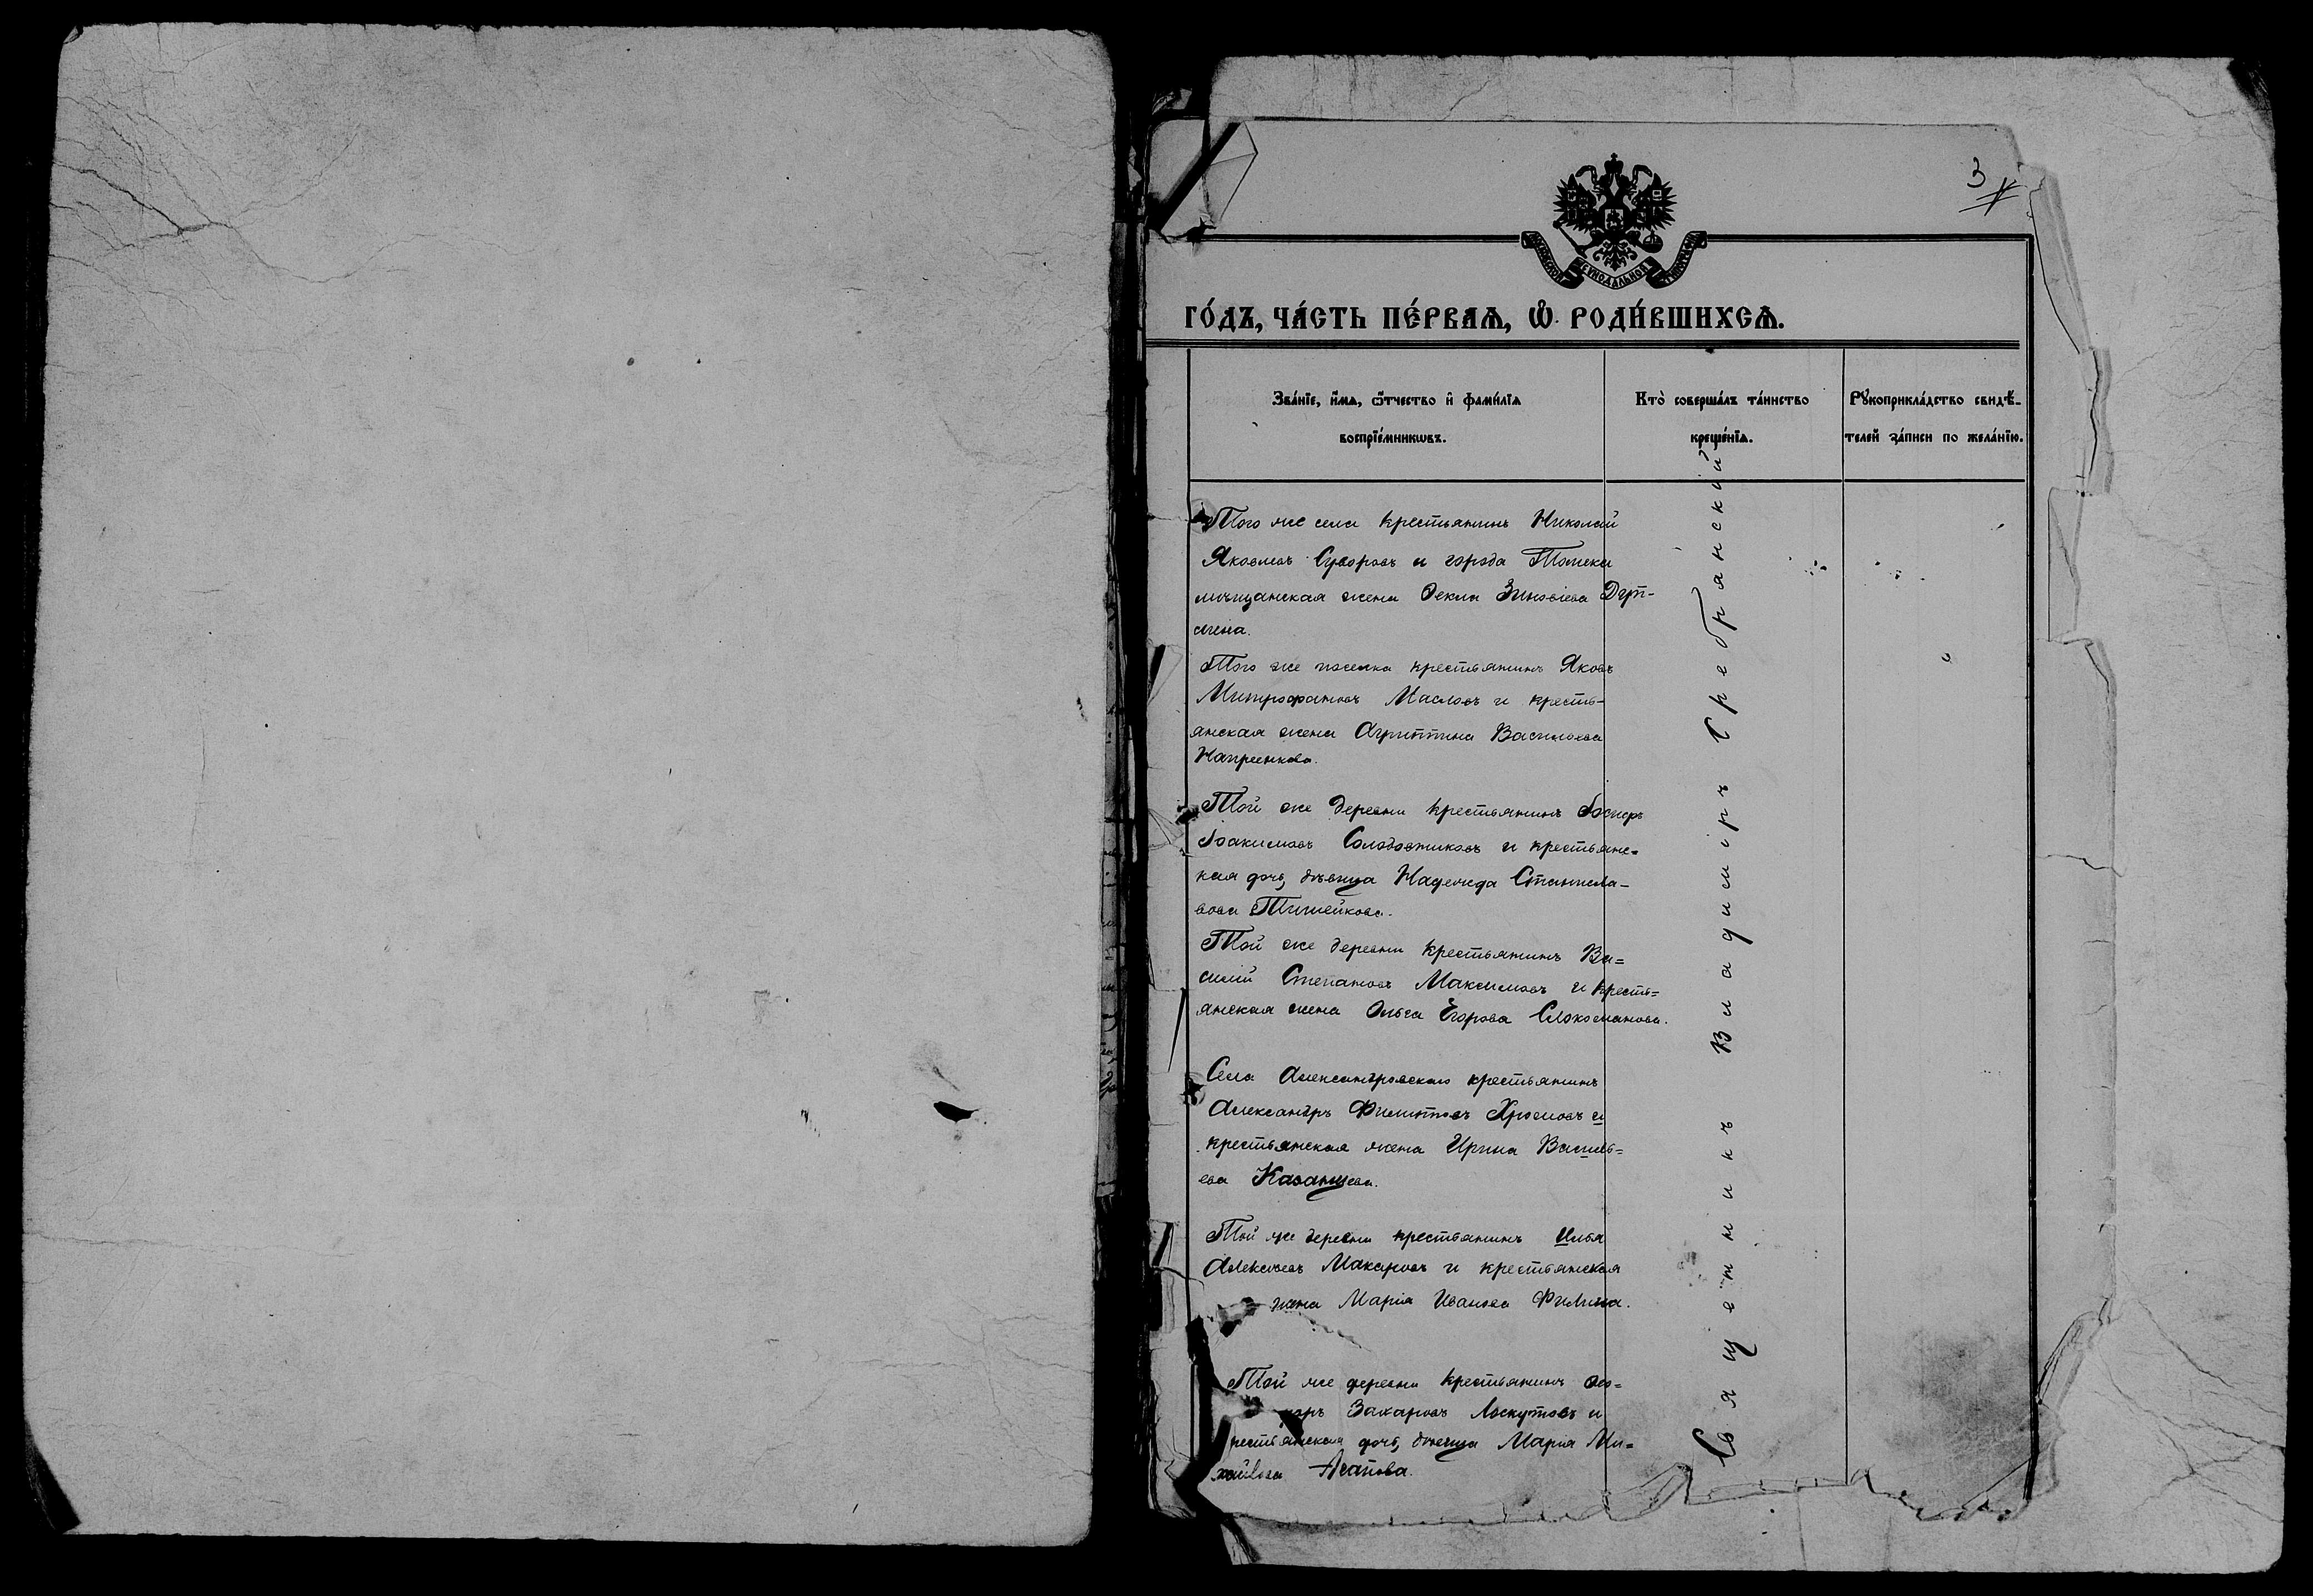 3
МОСКОВСКОЙ СѴНОДАЛЬНОЙ ТИПОГРАФІИ
ГО́ДЪ, ЧА́СТЬ ПЕ́РВАѦ, Ѽ РОДИ́ВШИХСѦ.
Зва́нїе, и҆́мѧ, ѻ҆́тчество и҆ фами́лїѧ
воспрїе́мникѡвъ.
Кто̀ соверша́лъ та́инство
креще́нїѧ.
Рꙋкоприкла́дство свидѣ́-
телей за́писи по жела́нїю.
Того же села крестьянинъ Николай
Яковлевъ Суворовъ и города Томска
мѣщанская жена Ѳекла Зиновіева
Того же поселка крестьянинъ Яковъ
Митрофановъ Масловъ и кресть-
янская жена Агриппина Васильева
Напреенкова.
Той же деревни крестьянинъ
Іоакимовъ Солодовниковъ и крестьянс=
кая дочь, дѣвица Надежда Станисла-
вова
Той же деревни крестьянинъ Ва=
силій Степановъ Максимовъ и кресть=
янская жена Ольга Егорова
Села Александровскаго крестьянинъ
Александръ Филипповъ Хромовъ и
крестьянская жена Ирина Василь=
ева Казанцева.
Той же деревни крестьянинъ Илья
Алексѣевъ Макаровъ и крестьянская
жена Марія Иванова Филина.
Той же деревни крестьянинъ
Захаровъ Лоскутовъ и
рестьянская дочь, дѣвица Марія Ми=
хайлова Агапова.
Священникъ Владиміръ Сребрянскій